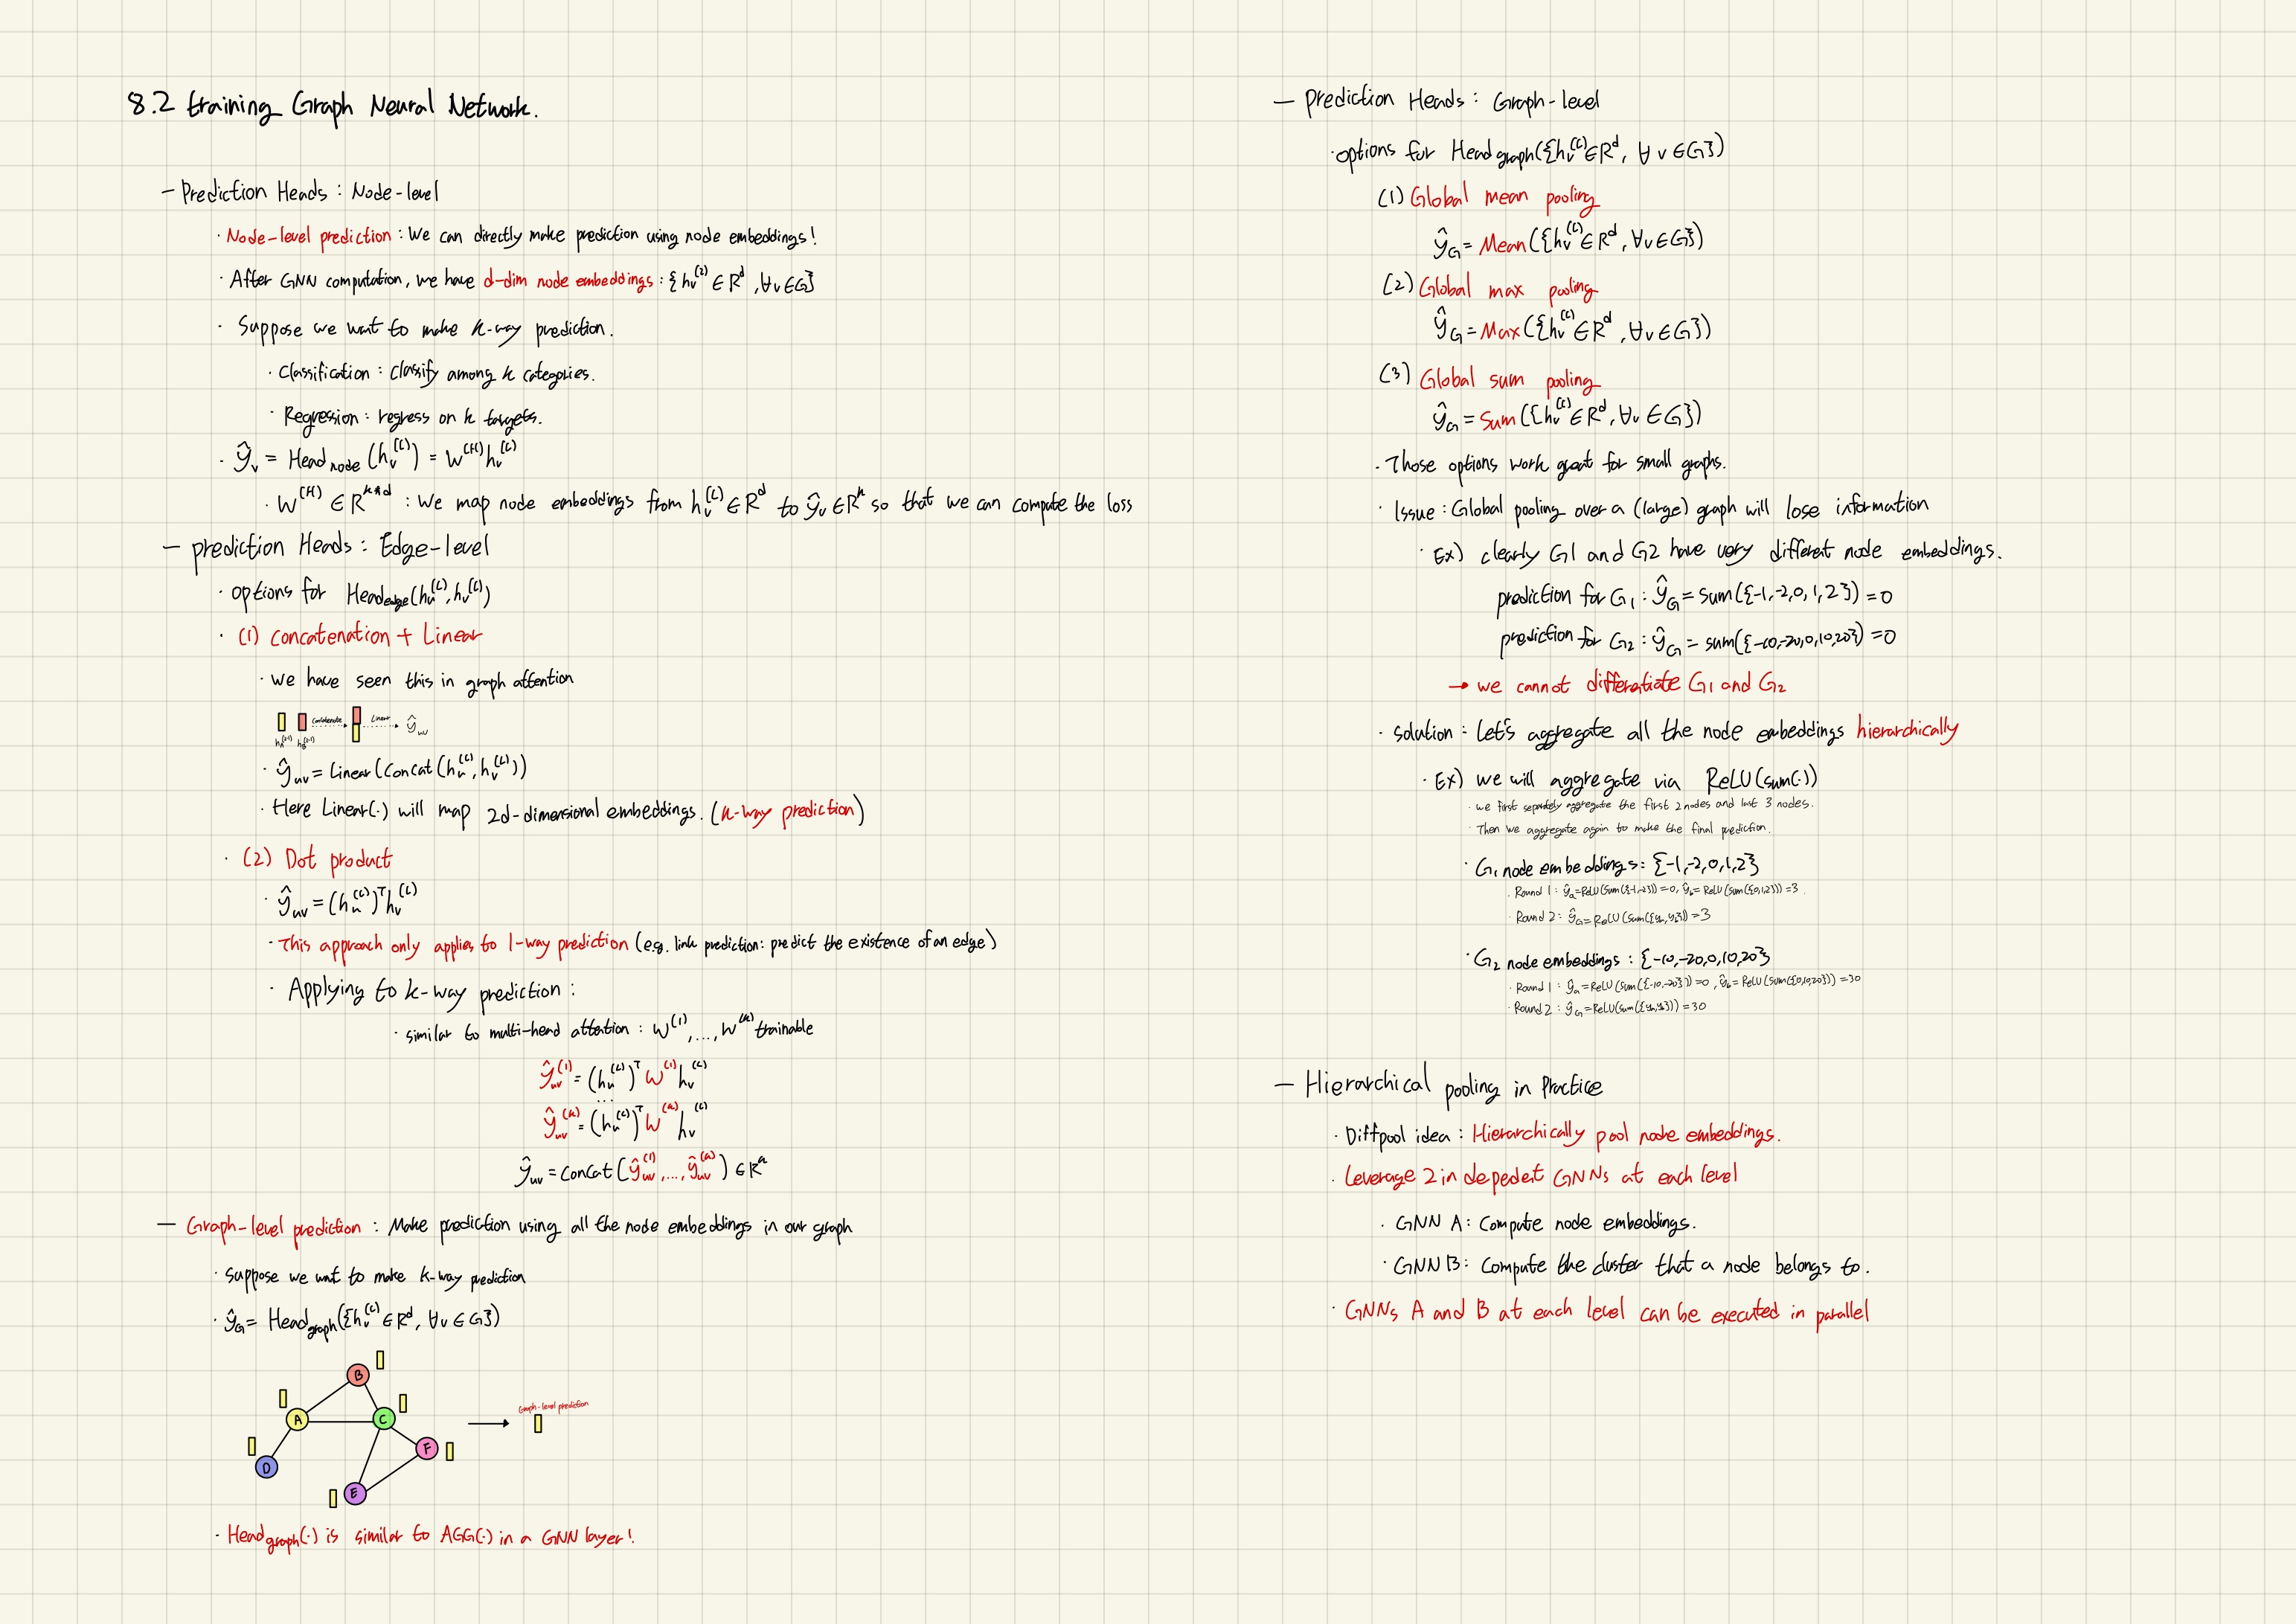 8.2 training Graph Neural Network.
- Prediction Heads : Node-level
· Node-level prediction : We can directly make prediction using node embeddings!
· After GNN computation, we have d-dim node embeddings : {h_v^(2) ∈ R^d, ∀v∈G}
· Suppose we want to make k-way prediction.
· Classification : classify among k categories.
· Regression : regress on k targets.
· ŷ_v = Head_node (h_v^(L)) = W^(H) h_v^(L)
· W^(H) ∈ R^k*d : We map node embeddings from h_v^(L) ∈ R^d to ŷ_v ∈ R^k so that we can compute the loss
- prediction Heads : Edge-level
· options for Head_edge(h_u^(L), h_v^(L))
· (1) concatenation + Linear
· we have seen this in graph attention
Concatenate Linear ŷ_uv
· ŷ_uv = Linear(concat(h_u^(L), h_v^(L)))
· Here Linear(·) will map 2d-dimensional embeddings. (k-way prediction)
· (2) Dot product
· ŷ_uv = (h_u^(L))^T h_v^(L)
· This approach only applies to 1-way prediction (e.g. link prediction: predict the existence of an edge)
· Applying to k-way prediction :
· similar to multi-head attention : W^(1), ..., W^(k) trainable
ŷ_uv^(1) = (h_u^(L))^T W^(1) h_v^(L)
...
ŷ_uv^(k) = (h_u^(L))^T W^(k) h_v^(L)
ŷ_uv = concat(ŷ_uv^(1), ..., ŷ_uv^(k)) ∈ R^k
- Graph-level prediction : Make prediction using all the node embeddings in our graph
· Suppose we want to make k-way prediction
· ŷ_G = Head_graph({h_v^(L) ∈ R^d, ∀v∈G})
B
A
C
Graph-level prediction
F
D
E
· Head_graph(·) is similar to AGG(·) in a GNN layer!
- prediction Heads : Graph-level
· options for Head_graph({h_v^(L) ∈ R^d, ∀v∈G})
(1) Global mean pooling
ŷ_G = Mean({h_v^(L) ∈ R^d, ∀v∈G})
(2) Global max pooling
ŷ_G = Max({h_v^(L) ∈ R^d, ∀v∈G})
(3) Global sum pooling
ŷ_G = Sum({h_v^(L) ∈ R^d, ∀v∈G})
· Those options work great for small graphs.
· Issue : Global pooling over a (large) graph will lose information
· Ex) clearly G1 and G2 have very different node embeddings.
prediction for G_1 : ŷ_G = sum({-1,-2,0,1,2}) = 0
prediction for G_2 : ŷ_G = sum({-10,-20,0,10,20}) = 0
→ we cannot differentiate G_1 and G_2
· solution : Let's aggregate all the node embeddings hierarchically
· Ex) we will aggregate via ReLU(sum(·))
· we first separately aggregate the first 2 nodes and last 3 nodes.
· Then we aggregate again to make the final prediction.
· G_1 node embeddings : {-1,-2,0,1,2}
· Round 1 : ŷ_a = ReLU(sum({-1,-2})) = 0, ŷ_b = ReLU(sum({0,1,2})) = 3.
· Round 2 : ŷ_G = ReLU(sum({y_a,y_b})) = 3
· G_2 node embeddings : {-10,-20,0,10,20}
· Round 1 : ŷ_a = ReLU(sum({-10,-20})) = 0, ŷ_b = ReLU(sum({0,10,20})) = 30
· Round 2 : ŷ_G = ReLU(sum({y_a,y_b})) = 30
- Hierarchical pooling in Practice
· Diffpool idea : Hierarchically pool node embeddings.
· Leverage 2 indepedent GNNs at each level
· GNN A : Compute node embeddings.
· GNN B : Compute the cluster that a node belongs to.
· GNNs A and B at each level can be executed in parallel